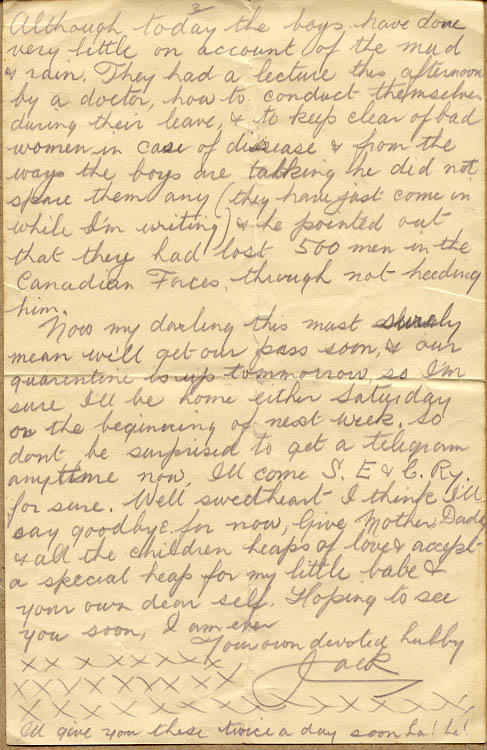 3
Although today the boys have done
very little on account of the mud
& rain. They had a lecture this afternoon
by a doctor, how to conduct themselves
during their leave, & to keep clear of bad
women in case of disease & from the
way the boys are talking he did not
spare them any (they have just come in
while I'm writing) & he pointed out
that they had lost 500 men in the
Canadian Forces, through not heeding
him.
Now my darling this must surely
mean we'll get our pass soon, & our
quarentine is up tommorrow, so I'm
sure I'll be home either Saturday
or the beginning of next week. so
dont be surprised to get a telegram
anytime now, I'll come S. E & C. Ry.
for sure. Well sweetheart I think I'll
say goodbye for now, Give Mother, Dady
& all the children heaps of love & accept
a special heap for my little babe &
your own dear self. Hoping to see
you soon, I am ever
Your own devoted hubby
Jack
xx xxxxxxxx
xxxxxxxxxxx
xxxxxxxxxxxxxxxxx
I'll give you these twice a day soon ha! ha!